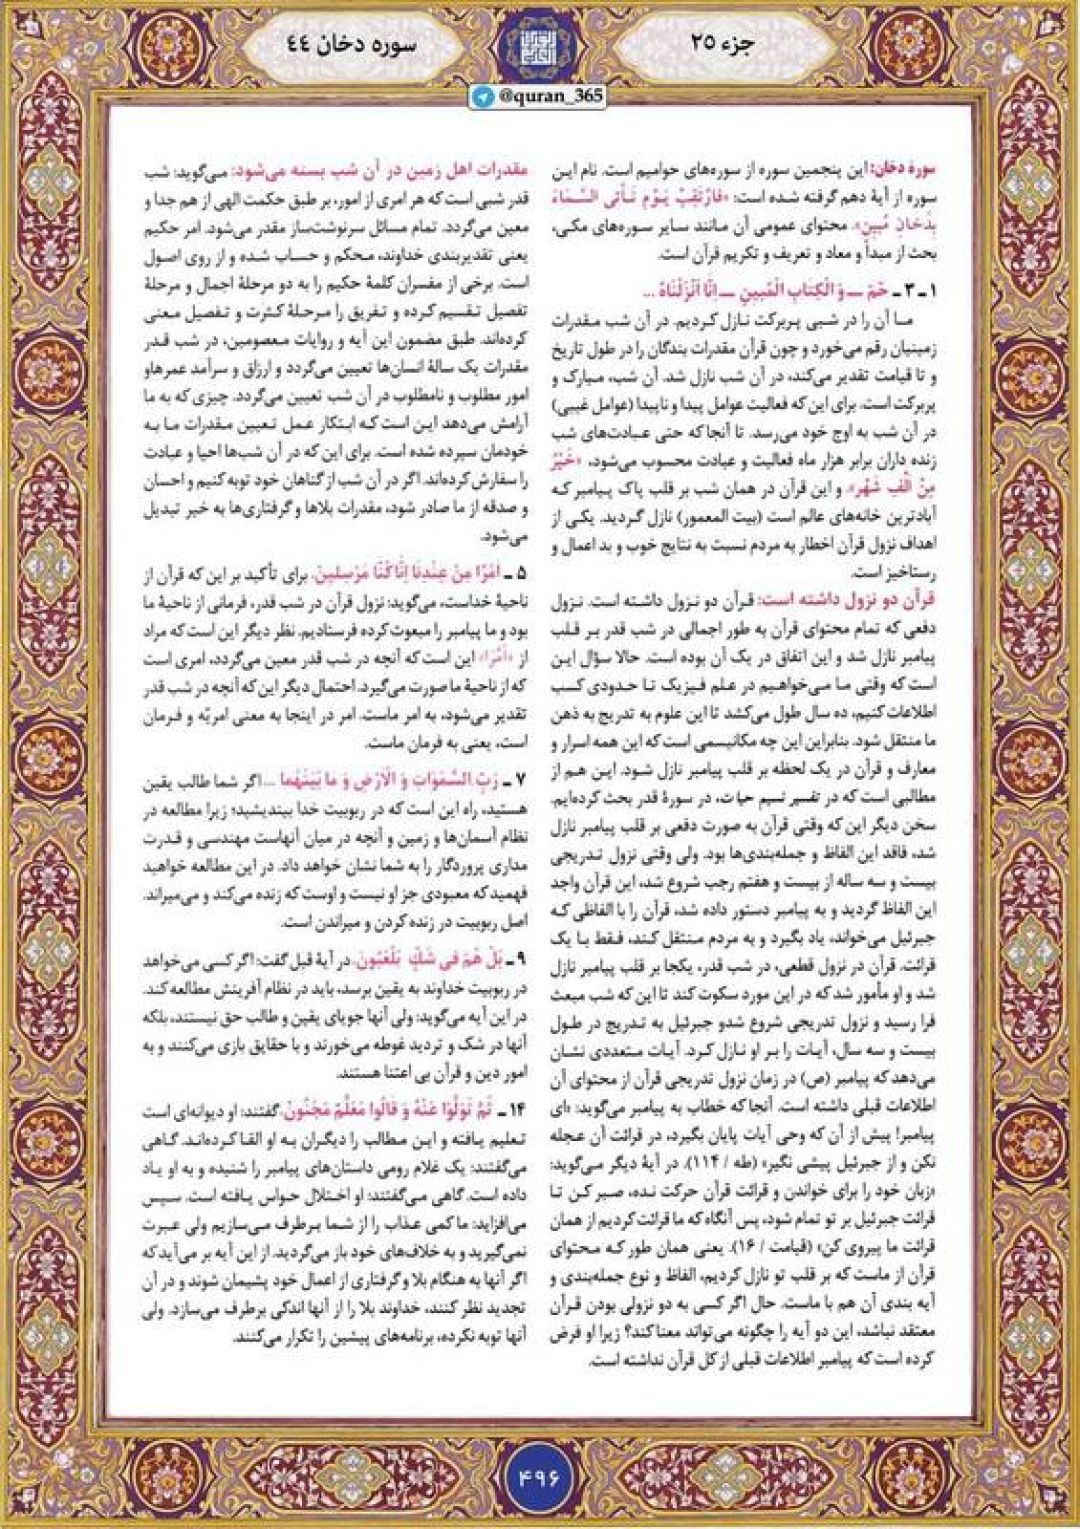 جزء ۲۵
سوره دخان ۴۴
@quran_365
سورهٔ دخان: این پنجمین سوره از سوره‌های حوامیم است. نام این
سوره از آیهٔ دهم گرفته شده است: «فَارْتَقِبْ یَوْمَ تَأْتِی السَّمَاءُ
بِدُخَانٍ مُبِینٍ». محتوای عمومی آن مانند سایر سوره‌های مکی،
بحث از مبدأ و معاد و تعریف و تکریم قرآن است.
۱ـ۳ـ حٓمٓ ــ وَ الْکِتَابِ الْمُبِینِ ــ اِنَّا اَنْزَلْنَاهُ ...
ما آن را در شبی پربرکت نازل کردیم. در آن شب مقدرات
زمینیان رقم می‌خورد و چون قرآن مقدرات بندگان را در طول تاریخ
و تا قیامت تقدیر می‌کند، در آن شب نازل شد. آن شب، مبارک و
پربرکت است. برای این که فعالیت عوامل پیدا و ناپیدا (عوامل غیبی)
در آن شب به اوج خود می‌رسد. تا آنجا که حتی عبادت‌های شب
زنده داران برابر هزار ماه فعالیت و عبادت محسوب می‌شود، «خَیْرٌ
مِنْ اَلْفِ شَهْرٍ». و این قرآن در همان شب بر قلب پاک پیامبر که
آبادترین خانه‌های عالم است (بیت المعمور) نازل گردید. یکی از
اهداف نزول قرآن اخطار به مردم نسبت به نتایج خوب و بد اعمال و
رستاخیز است.
قرآن دو نزول داشته است: قرآن دو نزول داشته است. نزول
دفعی که تمام محتوای قرآن به طور اجمالی در شب قدر بر قلب
پیامبر نازل شد و این اتفاق در یک آن بوده است. حالا سؤال این
است که وقتی ما می‌خواهیم در علم فیزیک تا حدودی کسب
اطلاعات کنیم، ده سال طول می‌کشد تا این علوم به تدریج به ذهن
ما منتقل شود. بنابراین این چه مکانیسمی است که این همه اسرار و
معارف و قرآن در یک لحظه بر قلب پیامبر نازل شود. این هم از
مطالبی است که در تفسیر نسیم حیات، در سورهٔ قدر بحث کرده‌ایم.
سخن دیگر این که وقتی قرآن به صورت دفعی بر قلب پیامبر نازل
شد، فاقد این الفاظ و جمله‌بندی‌ها بود. ولی وقتی نزول تدریجی
بیست و سه ساله از بیست و هفتم رجب شروع شد، این قرآن واجد
این الفاظ گردید و به پیامبر دستور داده شد، قرآن را با الفاظی که
جبرئیل می‌خواند، یاد بگیرد و به مردم منتقل کند، فقط با یک
قرائت. قرآن در نزول قطعی، در شب قدر، یکجا بر قلب پیامبر نازل
شد و او مأمور شد که در این مورد سکوت کند تا این که شب مبعث
فرا رسید و نزول تدریجی شروع شدو جبرئیل به تدریج در طول
بیست و سه سال، آیات را بر او نازل کرد. آیات متعددی نشان
می‌دهد که پیامبر (ص) در زمان نزول تدریجی قرآن از محتوای آن
اطلاعات قبلی داشته است. آنجا که خطاب به پیامبر می‌گوید: «ای
پیامبر! پیش از آن که وحی آیات پایان بگیرد، در قرائت آن عجله
نکن و از جبرئیل پیشی نگیر» (طه / ۱۱۴). در آیهٔ دیگر می‌گوید:
«زبان خود را برای خواندن و قرائت قرآن حرکت نده، صبر کن تا
قرائت جبرئیل بر تو تمام شود، پس آنگاه که ما قرائت کردیم از همان
قرائت ما پیروی کن» (قیامت / ۱۶). یعنی همان طور که محتوای
قرآن از ماست که بر قلب تو نازل کردیم، الفاظ و نوع جمله‌بندی و
آیه بندی آن هم با ماست. حال اگر کسی به دو نزولی بودن قرآن
معتقد نباشد، این دو آیه را چگونه می‌تواند معنا کند؟ زیرا او فرض
کرده است که پیامبر اطلاعات قبلی از کل قرآن نداشته است.
مقدرات اهل زمین در آن شب بسته می‌شود: می‌گوید: شب
قدر شبی است که هر امری از امور، بر طبق حکمت الهی از هم جدا و
معین می‌گردد. تمام مسائل سرنوشت‌ساز مقدر می‌شود. امر حکیم
یعنی تقدیربندی خداوند، محکم و حساب شده و از روی اصول
است. برخی از مفسران کلمهٔ حکیم را به دو مرحلهٔ اجمال و مرحلهٔ
تفصیل تقسیم کرده و تفریق را مرحلهٔ کثرت و تفصیل معنی
کرده‌اند. طبق مضمون این آیه و روایات معصومین، در شب قدر
مقدرات یک سالهٔ انسان‌ها تعیین می‌گردد و ارزاق و سرآمد عمرهاو
امور مطلوب و نامطلوب در آن شب تعیین می‌گردد. چیزی که به ما
آرامش می‌دهد این است که ابتکار عمل تعیین مقدرات ما به
خودمان سپرده شده است. برای این که در آن شب‌ها احیا و عبادت
را سفارش کرده‌اند. اگر در آن شب از گناهان خود توبه کنیم و احسان
و صدقه از ما صادر شود، مقدرات بلاها و گرفتاری‌ها به خیر تبدیل
می‌شود.
۵ ـ اَمْرًا مِنْ عِنْدِنَا اِنَّا کُنَّا مُرْسِلِینَ. برای تأکید بر این که قرآن از
ناحیهٔ خداست، می‌گوید: نزول قرآن در شب قدر، فرمانی از ناحیهٔ ما
بود و ما پیامبر را مبعوث کرده فرستادیم. نظر دیگر این است که مراد
از «اَمْرًا» این است که آنچه در شب قدر معین می‌گردد، امری است
که از ناحیهٔ ما صورت می‌گیرد. احتمال دیگر این که آنچه در شب قدر
تقدیر می‌شود، به امر ماست. امر در اینجا به معنی امریّه و فرمان
است، یعنی به فرمان ماست.
۷ ـ رَبِّ السَّمٰوَاتِ وَ الْاَرْضِ وَ مَا بَیْنَهُمَا ... اگر شما طالب یقین
هستید، راه این است که در ربوبیت خدا بیندیشید؛ زیرا مطالعه در
نظام آسمان‌ها و زمین و آنچه در میان آنهاست مهندسی و قدرت
مداری پروردگار را به شما نشان خواهد داد. در این مطالعه خواهید
فهمید که معبودی جز او نیست و اوست که زنده می‌کند و می‌میراند.
اصل ربوبیت در زنده کردن و میراندن است.
۹ ـ بَلْ هُمْ فِی شَکٍّ یَلْعَبُونَ. در آیهٔ قبل گفت: اگر کسی می‌خواهد
در ربوبیت خداوند به یقین برسد، باید در نظام آفرینش مطالعه کند.
در این آیه می‌گوید: ولی آنها جویای یقین و طالب حق نیستند، بلکه
آنها در شک و تردید غوطه می‌خورند و با حقایق بازی می‌کنند و به
امور دین و قرآن بی اعتنا هستند.
۱۴ ـ ثُمَّ تَوَلَّوْا عَنْهُ وَ قَالُوا مُعَلَّمٌ مَجْنُونٌ. گفتند: او دیوانه‌ای است
تعلیم یافته و این مطالب را دیگران به او القا کرده‌اند. گاهی
می‌گفتند: یک غلام رومی داستان‌های پیامبر را شنیده و به او یاد
داده است. گاهی می‌گفتند: او اختلال حواس یافته است. سپس
می‌افزاید: ما کمی عذاب را از شما برطرف می‌سازیم ولی عبرت
نمی‌گیرید و به خلاف‌های خود باز می‌گردید. از این آیه بر می‌آید که
اگر آنها به هنگام بلا و گرفتاری از اعمال خود پشیمان شوند و در آن
تجدید نظر کنند، خداوند بلا را از آنها اندکی برطرف می‌سازد. ولی
آنها توبه نکرده، برنامه‌های پیشین را تکرار می‌کنند.
۴۹۶